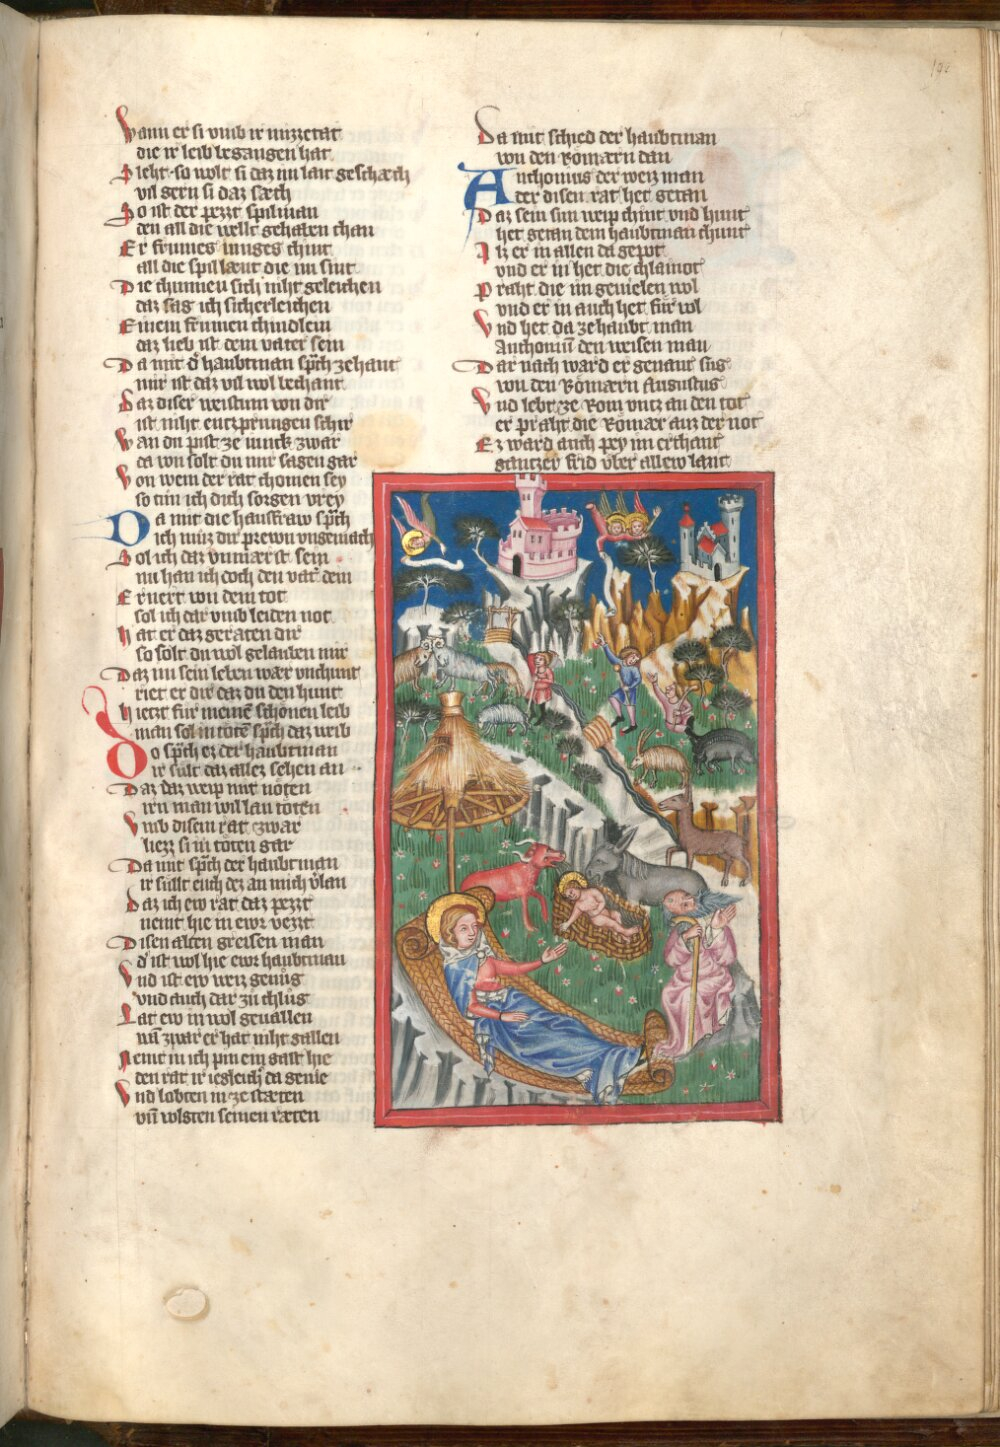 Wann er si vmb ir mizzetat
die ir leib begangen hat
Siecht so wolt si daz im lait geschæch
vil gern si daz sæch
So ist der pezzt spilman
den all die wellt gehaben chan
Er frumes iunges chint
all die spil læut die nu sint
Die chunnen sich niht geleichen
daz sag ich sicherleichen
Einem frumen chindlein
daz lieb ist dem vater sein
Da mit d haubtman sp̃ch ze hant
mir ist daz vil wol bechant
Daz diser weistum von dir
ist niht entzprungen schir
Wan du pist ze iunch zwar
da von solt du mir sagen gar
Von wem der rat chomen sey
so tun ich dich sorgen vrey
Da mit die hausfraw sp̃ch
ich mӱz dir prewn vngemach
Sol ich daz vmmær st sein
nu han ich doch den vat̃ dein
Ernert von dem tot
sol ich dar vmb leiden not
Hat er daz geraten dir
so solt du wol gelauben mir
Daz im sein leben wær vnchunt
riet er dir daz du den hunt
Hietzt fur meinē schonen leib
man sol in tötē sp̃ch daz weib
Do sp̃ch ez der haubtman
ir sült daz allez sehen an
Daz daz weip mit nöten
irn man wil lan töten
Vmb disen rat zwar
liezz si in töten gar
Da mit sp̃ch der haubtman
ir süllt euch dez an mich v̓lan
Daz ich ew rat daz pezzt
nemt hie in ewr vezzt
Disen alten greisen man
d̓ ist wol hie ewr haubtman
Vnd ist ew weiz genůg
vnd auch dar zů chlůg
Lat ew in wol geuallen
wā zwar er hat niht gallen
Nemt in ich pin ein gast hie
den rat ir iegleich̓ da genie
Vnd lobten in ze stæten
vn̄ volgten seinen ræten
Da mit schied der haubtman
von den Römærn dan
Anthonius der weiz man
der disen rat het getan
Daz sein sun weip chint vnd hunt
het getan dem haubtman chunt
Alz er in allen da gepot
vnd er in het die chlainot
Praht die im geuielen wol
vnd er in auch het für wol
Vnd het da ze haubt man
Anthoniū den weisen man
Dar nach ward er genant sus
von den Römærn Augustus
Vnd lebt ze Rom vntz an den tot
er praht die Römær auz der not
Ez ward auch pey im erchant
gantzer frid vber allew lant